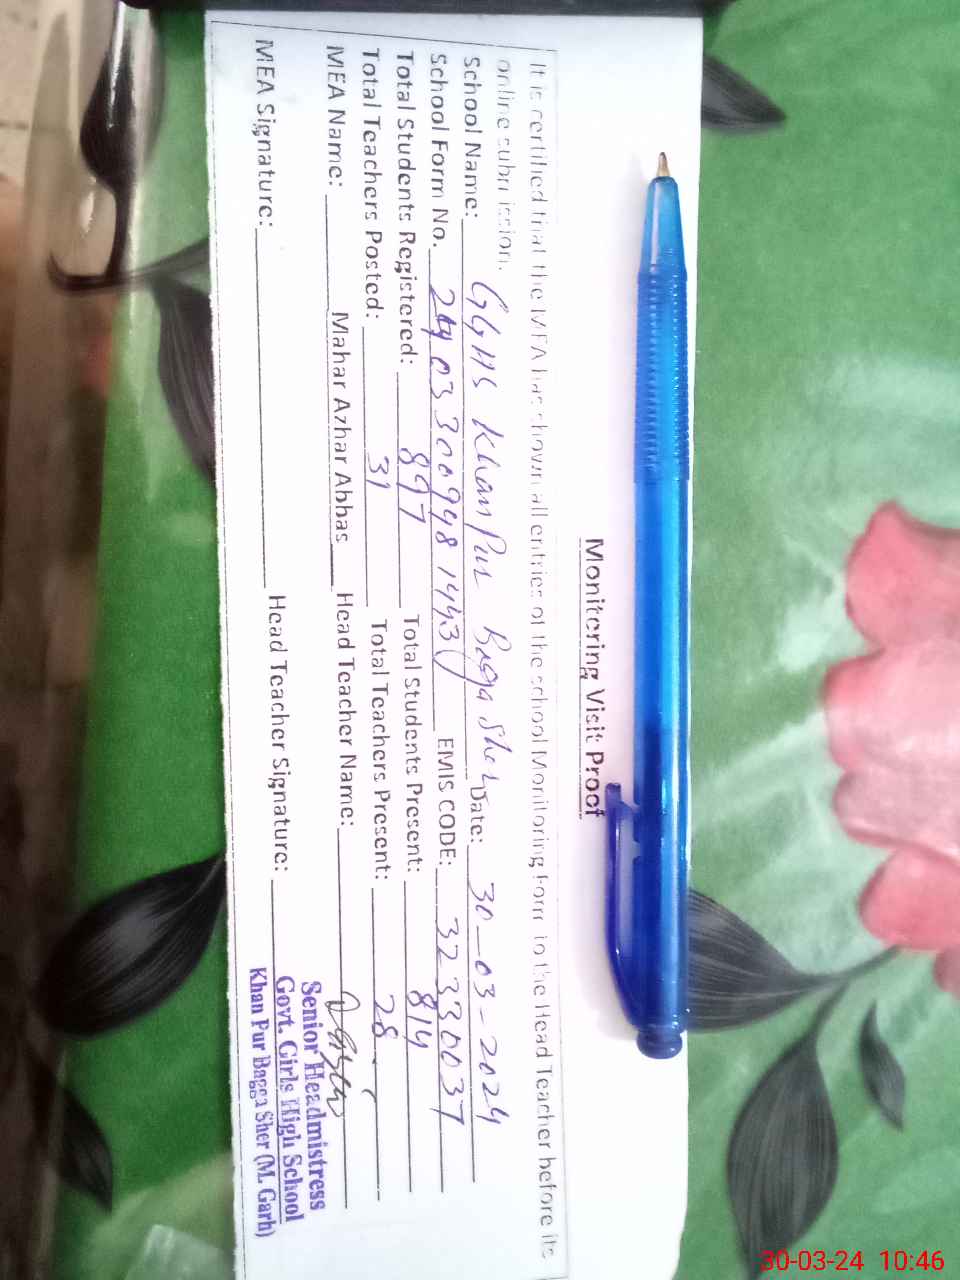 Monitoring Visit Proof
It is certified that the MEA has shown all entries of the school Monitoring Form to the Head Teacher before its
online submission.
School Name: GGHS Khan Pur Bagga Sher Date: 30-03-2024
School Form No. EMIS CODE: 32330037
Total Students Registered: 897 Total Students Present: 814
Total Teachers Posted: 31 Total Teachers Present: 28
MEA Name: Mahar Azhar Abbas Head Teacher Name:
MEA Signature: Head Teacher Signature:
Senior Headmistress
Govt. Girls High School
Khan Pur Bagga Sher (M. Garh)
30-03-24 10:46